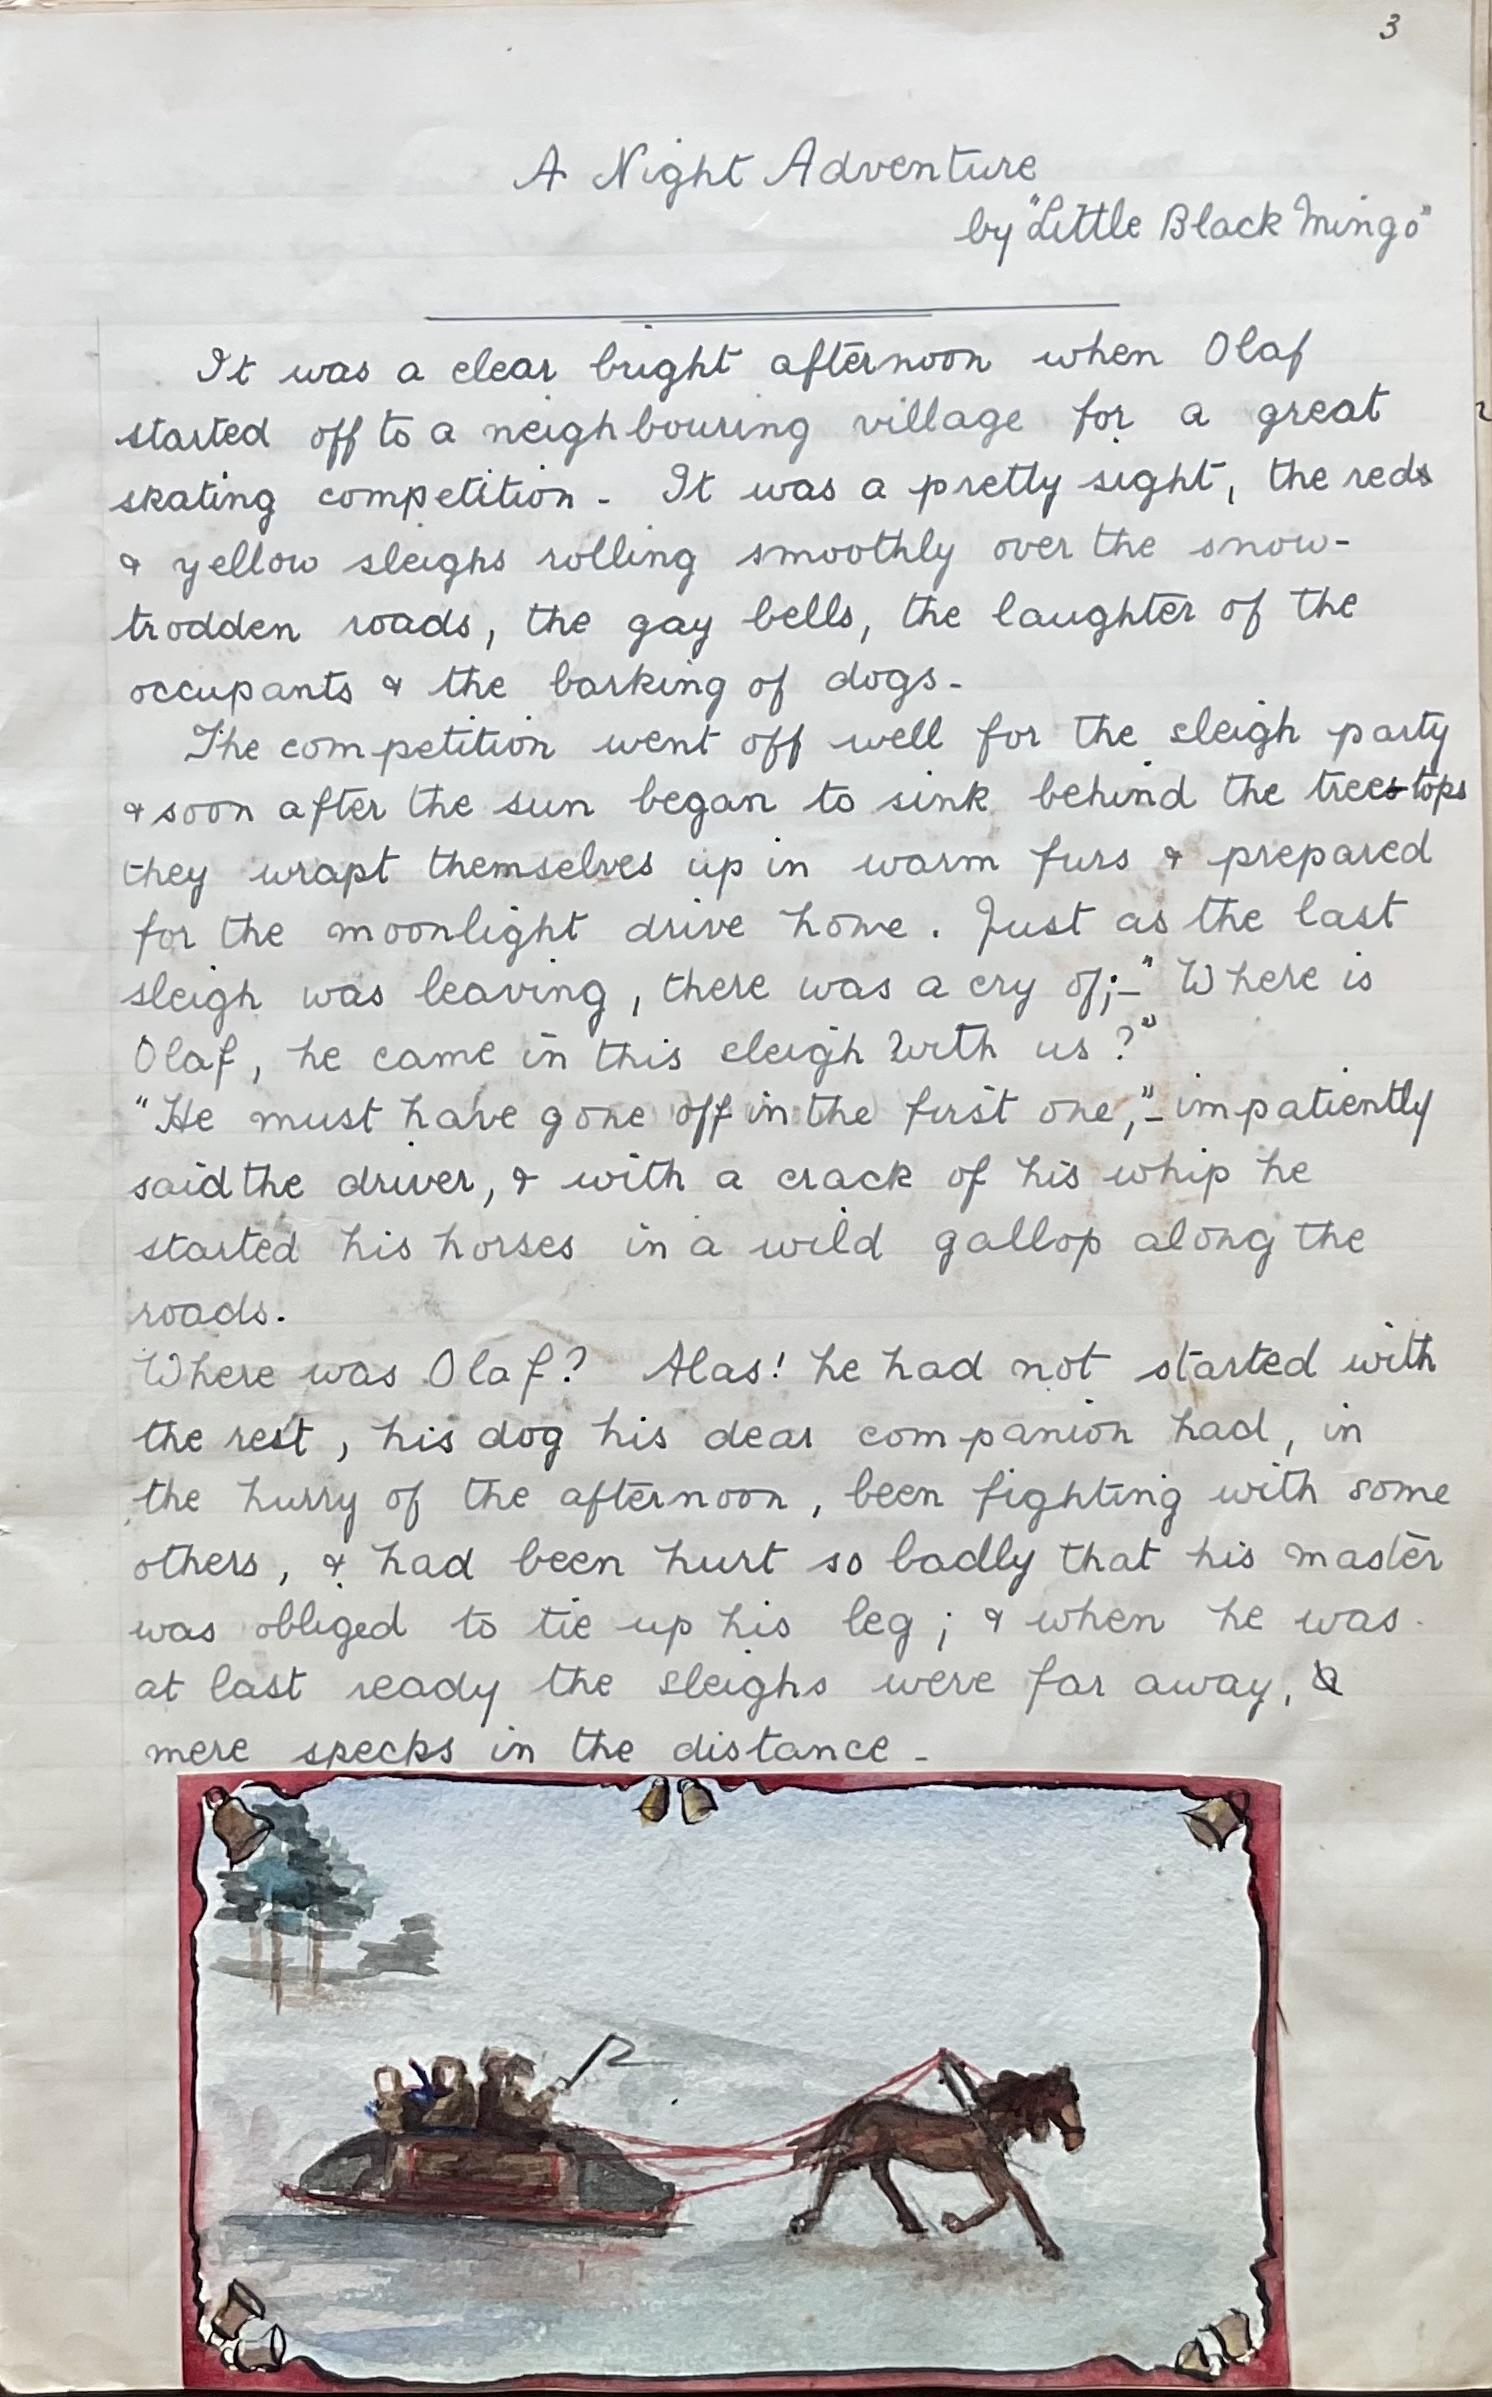 3
A Night Adventure
by "Little Black Mingo"
It was a clear bright afternoon when Olaf
started off to a neighbouring village for a great
skating competition - It was a pretty sight, the reds
& yellow sleighs rolling smoothly over the snow-
trodden roads, the gay bells, the laughter of the
occupants & the barking of dogs -
The competition went off well for the sleigh party
& soon after the sun began to sink behind the trees tops
they wrapt themselves up in warm furs & prepared
for the moonlight drive home. Just as the last
sleigh was leaving, there was a cry of;-" Where is
Olaf, he came in this sleigh with us?"
"He must have gone off in the first one,"- impatiently
said the driver, & with a crack of his whip he
started his horses in a wild gallop along the
roads.
Where was Olaf? Alas! he had not started with
the rest, his dog his dear companion had, in
the hurry of the afternoon, been fighting with some
others, & had been hurt so badly that his master
was obliged to tie up his leg; & when he was
at last ready the sleighs were far away,
mere specks in the distance -